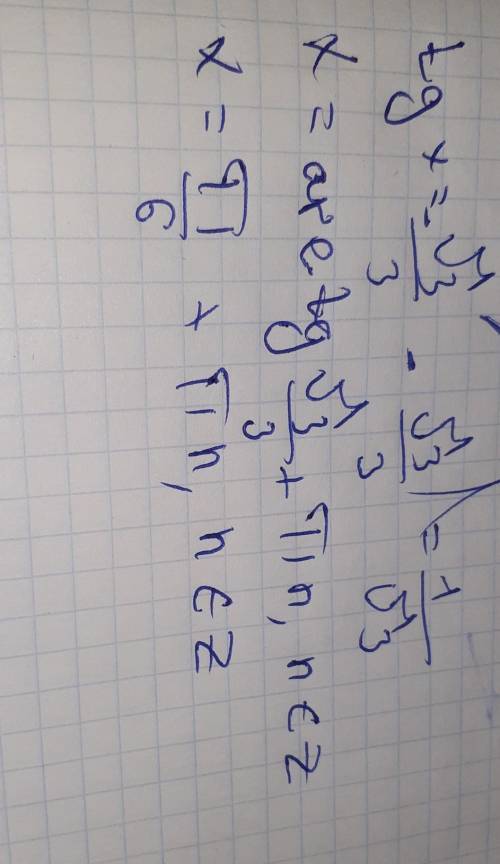 tg x = √3/3 · √3/3 = 1/√3
x = arctg √3/3 + πn, n ∈ Z
x = π/6 + πn, n ∈ Z